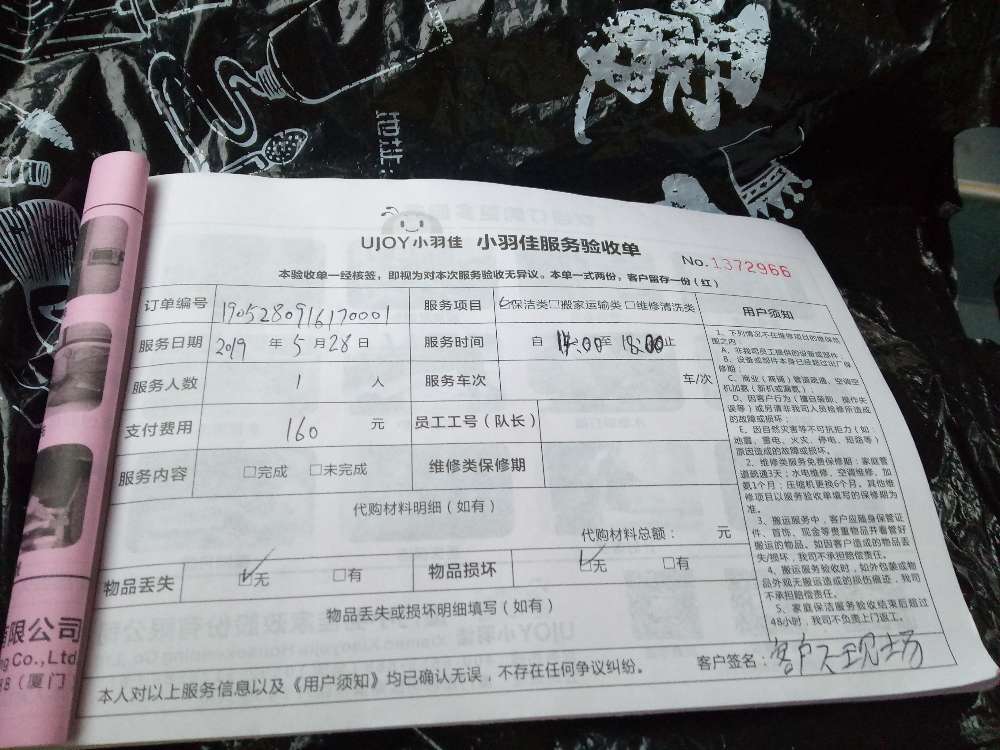 UJOY小羽佳 小羽佳服务验收单
No.1372966
本验收单一经核签，即视为对本次服务验收无异议。本单一式两份，客户留存一份（红）
订单编号 1905280916170001 服务项目 ☑保洁类□搬家运输类□维修清洗类
服务日期 2019 年 5 月 28 日 服务时间 自 14:00 至 18:00 止
服务人数 1 人 服务车次 车/次
支付费用 160 元 员工工号（队长）
服务内容 □完成 □未完成 维修类保修期
代购材料明细（如有）
代购材料总额： 元
物品丢失 ☑无 □有 物品损坏 ☑无 □有
物品丢失或损坏明细填写（如有）
本人对以上服务信息以及《用户须知》均已确认无误，不存在任何争议纠纷。
客户签名：客户不现场
用户须知
1、下列情况不在维修项目的维保范
围之内
A、非我司员工提供的设备或部件
B、设备或部件本身已经超过出厂保
修期
C、商业（商铺）管道疏通、空调空
机加氨（新机或漏氨）
D、因客户行为（擅自装卸、操作失
误等）或另请非我司人员维修所造成
的故障或损坏；
E、因自然灾害等不可抗拒力（如：
地震、雷电、火灾、停电、短路等）
原因造成的故障或损坏。
2、维修类服务免费保修期：家庭管
道疏通3天；水电维修、空调维修、加
氨1个月；压缩机更换6个月。其他维
修项目以服务验收单填写的保修期为
准。
3、搬运服务中，客户应随身保管证
件、首饰、现金等贵重物品并看管好
搬运的物品。如因客户造成的物品丢
失/损坏，我司不承担赔偿责任。
4、搬运服务验收时，如外包装或物
品外观无搬运造成的损伤痕迹，我司
不承担赔偿责任。
5、家庭保洁服务验收结束后超过
48小时，我司不负责上门返工。
有限公司
ng Co.,Ltd
（厦门